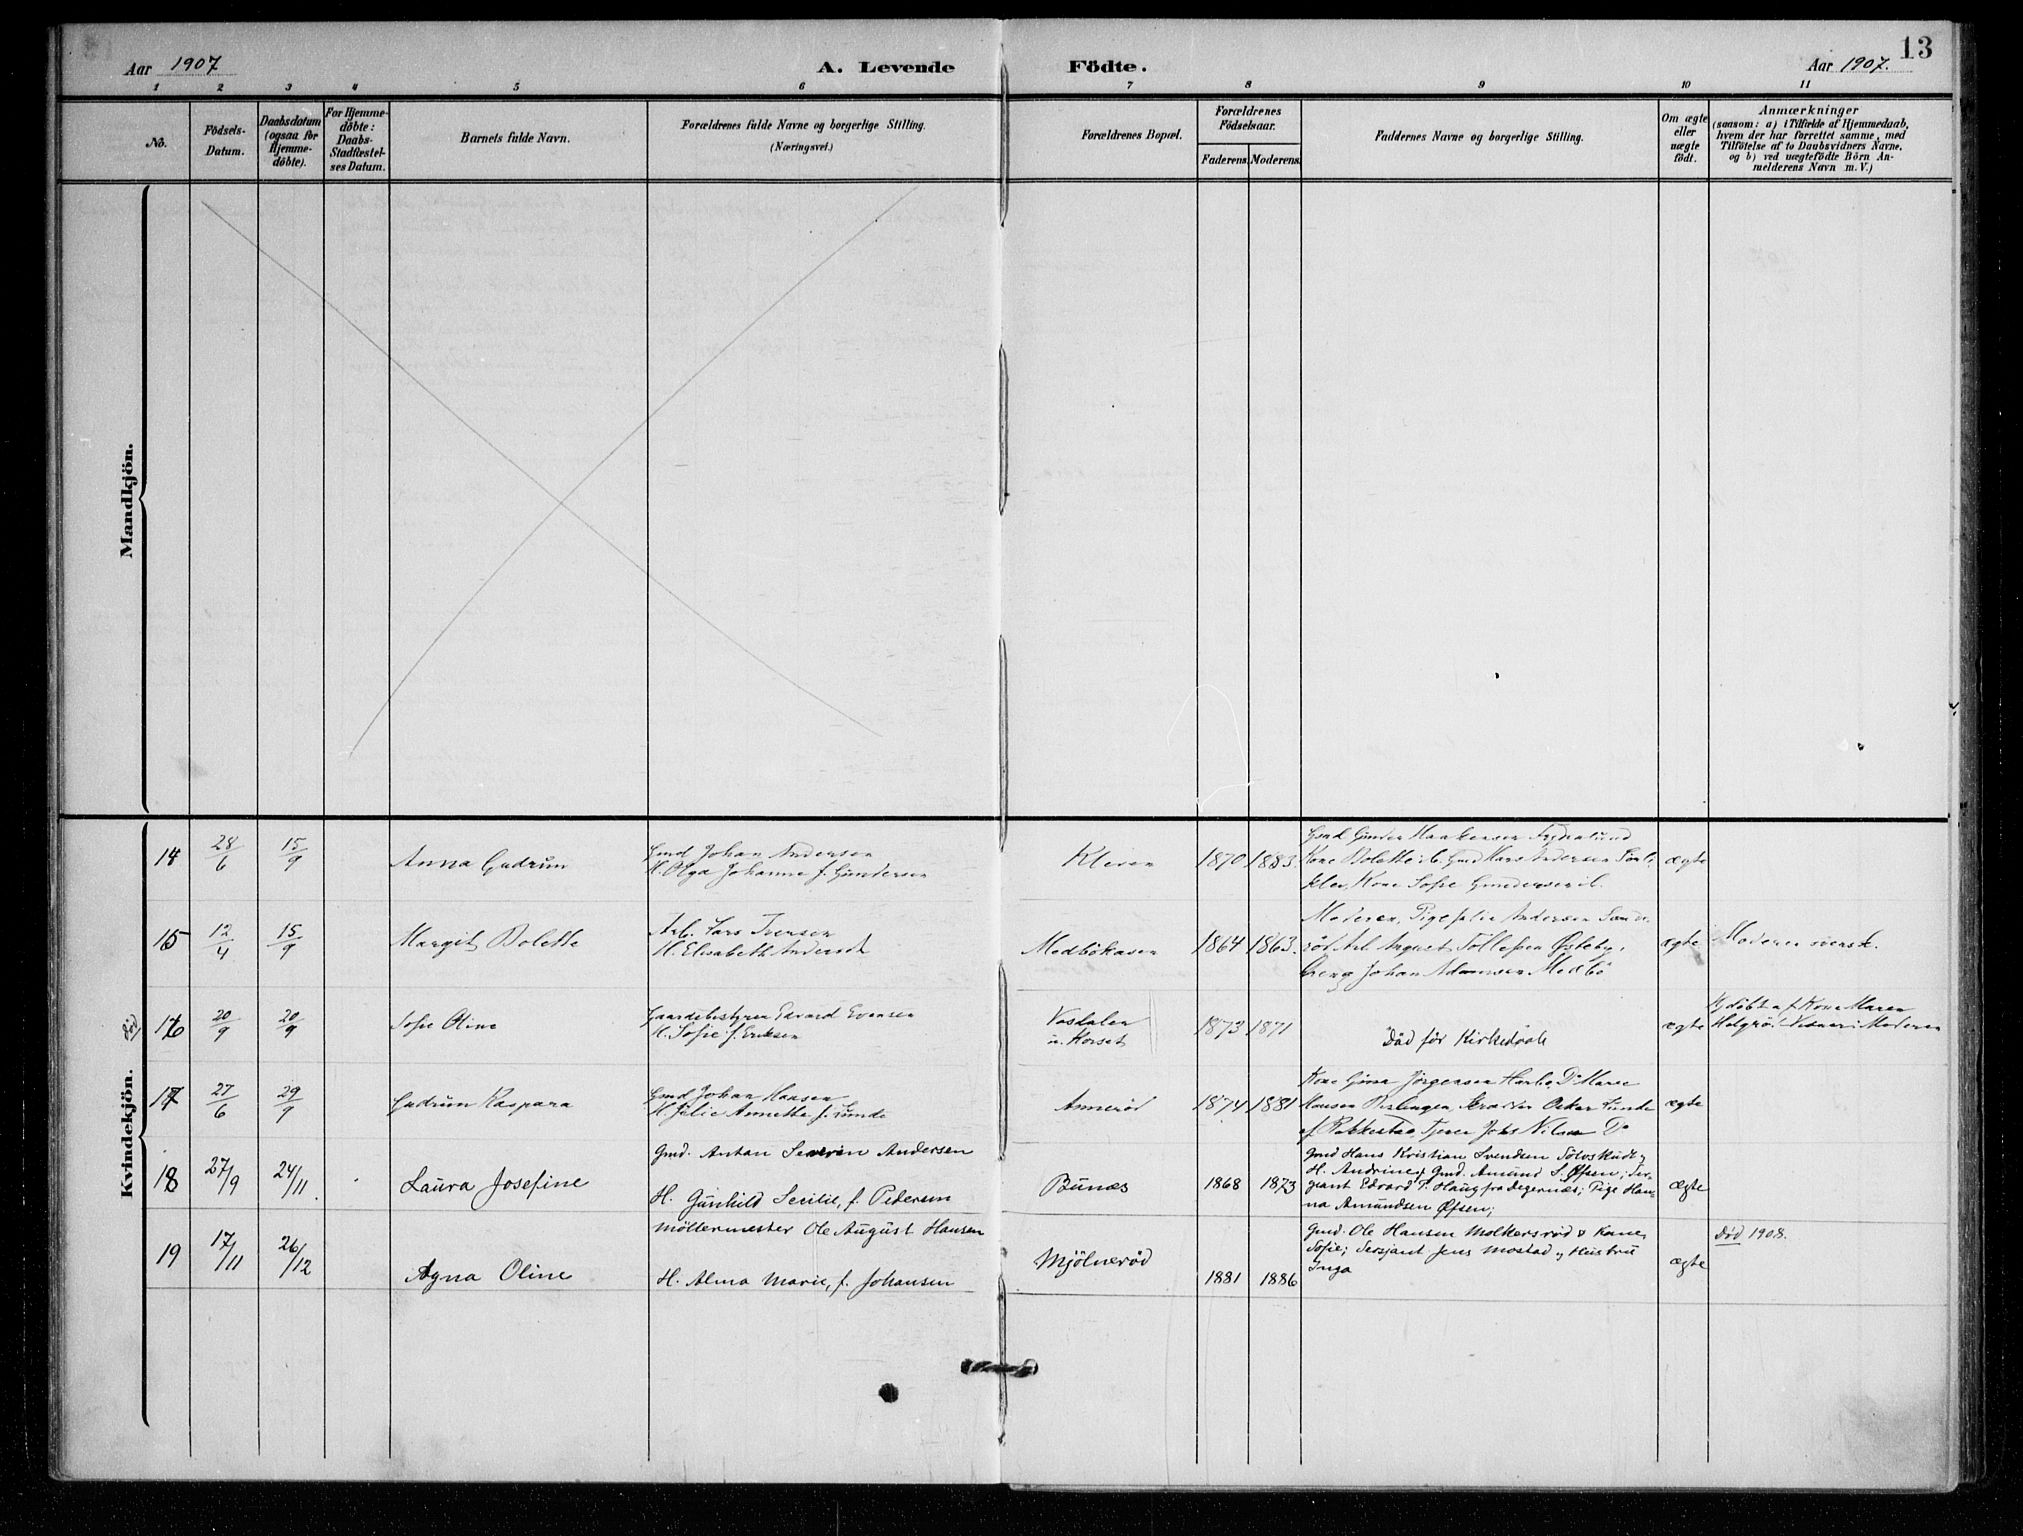 13
Aar 1907
A. Levende
Födte.
Aar 1907.
1 2 3 4 5 6 7 8 9 10 11
No.
Födsels-
Datum.
Daabsdatum
(ogsaa for
Hjemme-
döbte).
For Hjemme-
döbte:
Daabs-
Stadfæstel-
ses Datum.
Barnets fulde Navn.
Forældrenes fulde Navne og borgerlige Stilling.
(Næringsvei.)
Forældrenes Bopæl.
Forældrenes
Födselsaar.
Faderens.
Moderens.
Faddernes Navne og borgerlige Stilling.
Om ægte
eller
uægte
födt.
Anmærkninger
(saasom: a) i Tilfælde af Hjemmedaab,
hvem der har forrettet samme, med
Tilföielse af to Daabsvidners Navne,
og b) ved uægtefödte Börn An-
melderens Navn m. V.)
Mandkjön.
Kvindekjön.
14
28/6
15/9
Anna Gudrun
Gmd Johan Andersen
H. Olga Johanne f. Gundersen
Kleven
1870
1883.
Kone Bolette Gmd Hans Andersen
Kone Sofie
ægte
15
12/4
15/9
Margit Bolette
Arb. Lars Iversen
H. Elisabeth Andersdt
Medbökasen
1864
1863.
Moderen, Pige Julie Andersen
Arb August Tollefsen Østeby,
Johan Adamsen Medbö
ægte
Moderen svensk.
död
16
20/9
20/9
Sofie Oline
Gaardsbestyrer Edvard Evensen
H. Sofie f. Eriksen
Vasdalen
u. Horset
1873
1871
Död för Kirkedaab
ægte
Hjdöbt af Kone Maren
Moderen
17
27/6
29/9
Gudrun Kaspara
Gmd Johan Hansen
H. Julie Annette f. Lunde
Annerød
1874
1881
Kone Gina Jörgensen Do Marie
Hansen Oskar Lunde
af Rakkestad, Tjener Johs Nilsen Do
ægte
18
27/9
24/11.
Laura Josefine
Gmd. Anton Severin Andersen
H. Gunhild Secilie, f. Pedersen
Bunæs
1868
1873
Gmd Hans Kristian Svendsen
H. Andrine; Gmd. Amund S. Øfsen; Ser-
giant Edvard T. Haug fra Degernæs; Pige Han-
na Amundsen Øfsen;
ægte
19
17/11
26/12
Agna Oline
Møllermester Ole August Hansen
H. Alma Marie, f. Johansen
Mjölnerød
1881
1886
Gmd. Ole Hansen Molkersrød & Kone
Sofie; Sersjant Jens Mostad & Hustru
Inga
ægte
Död 1908.